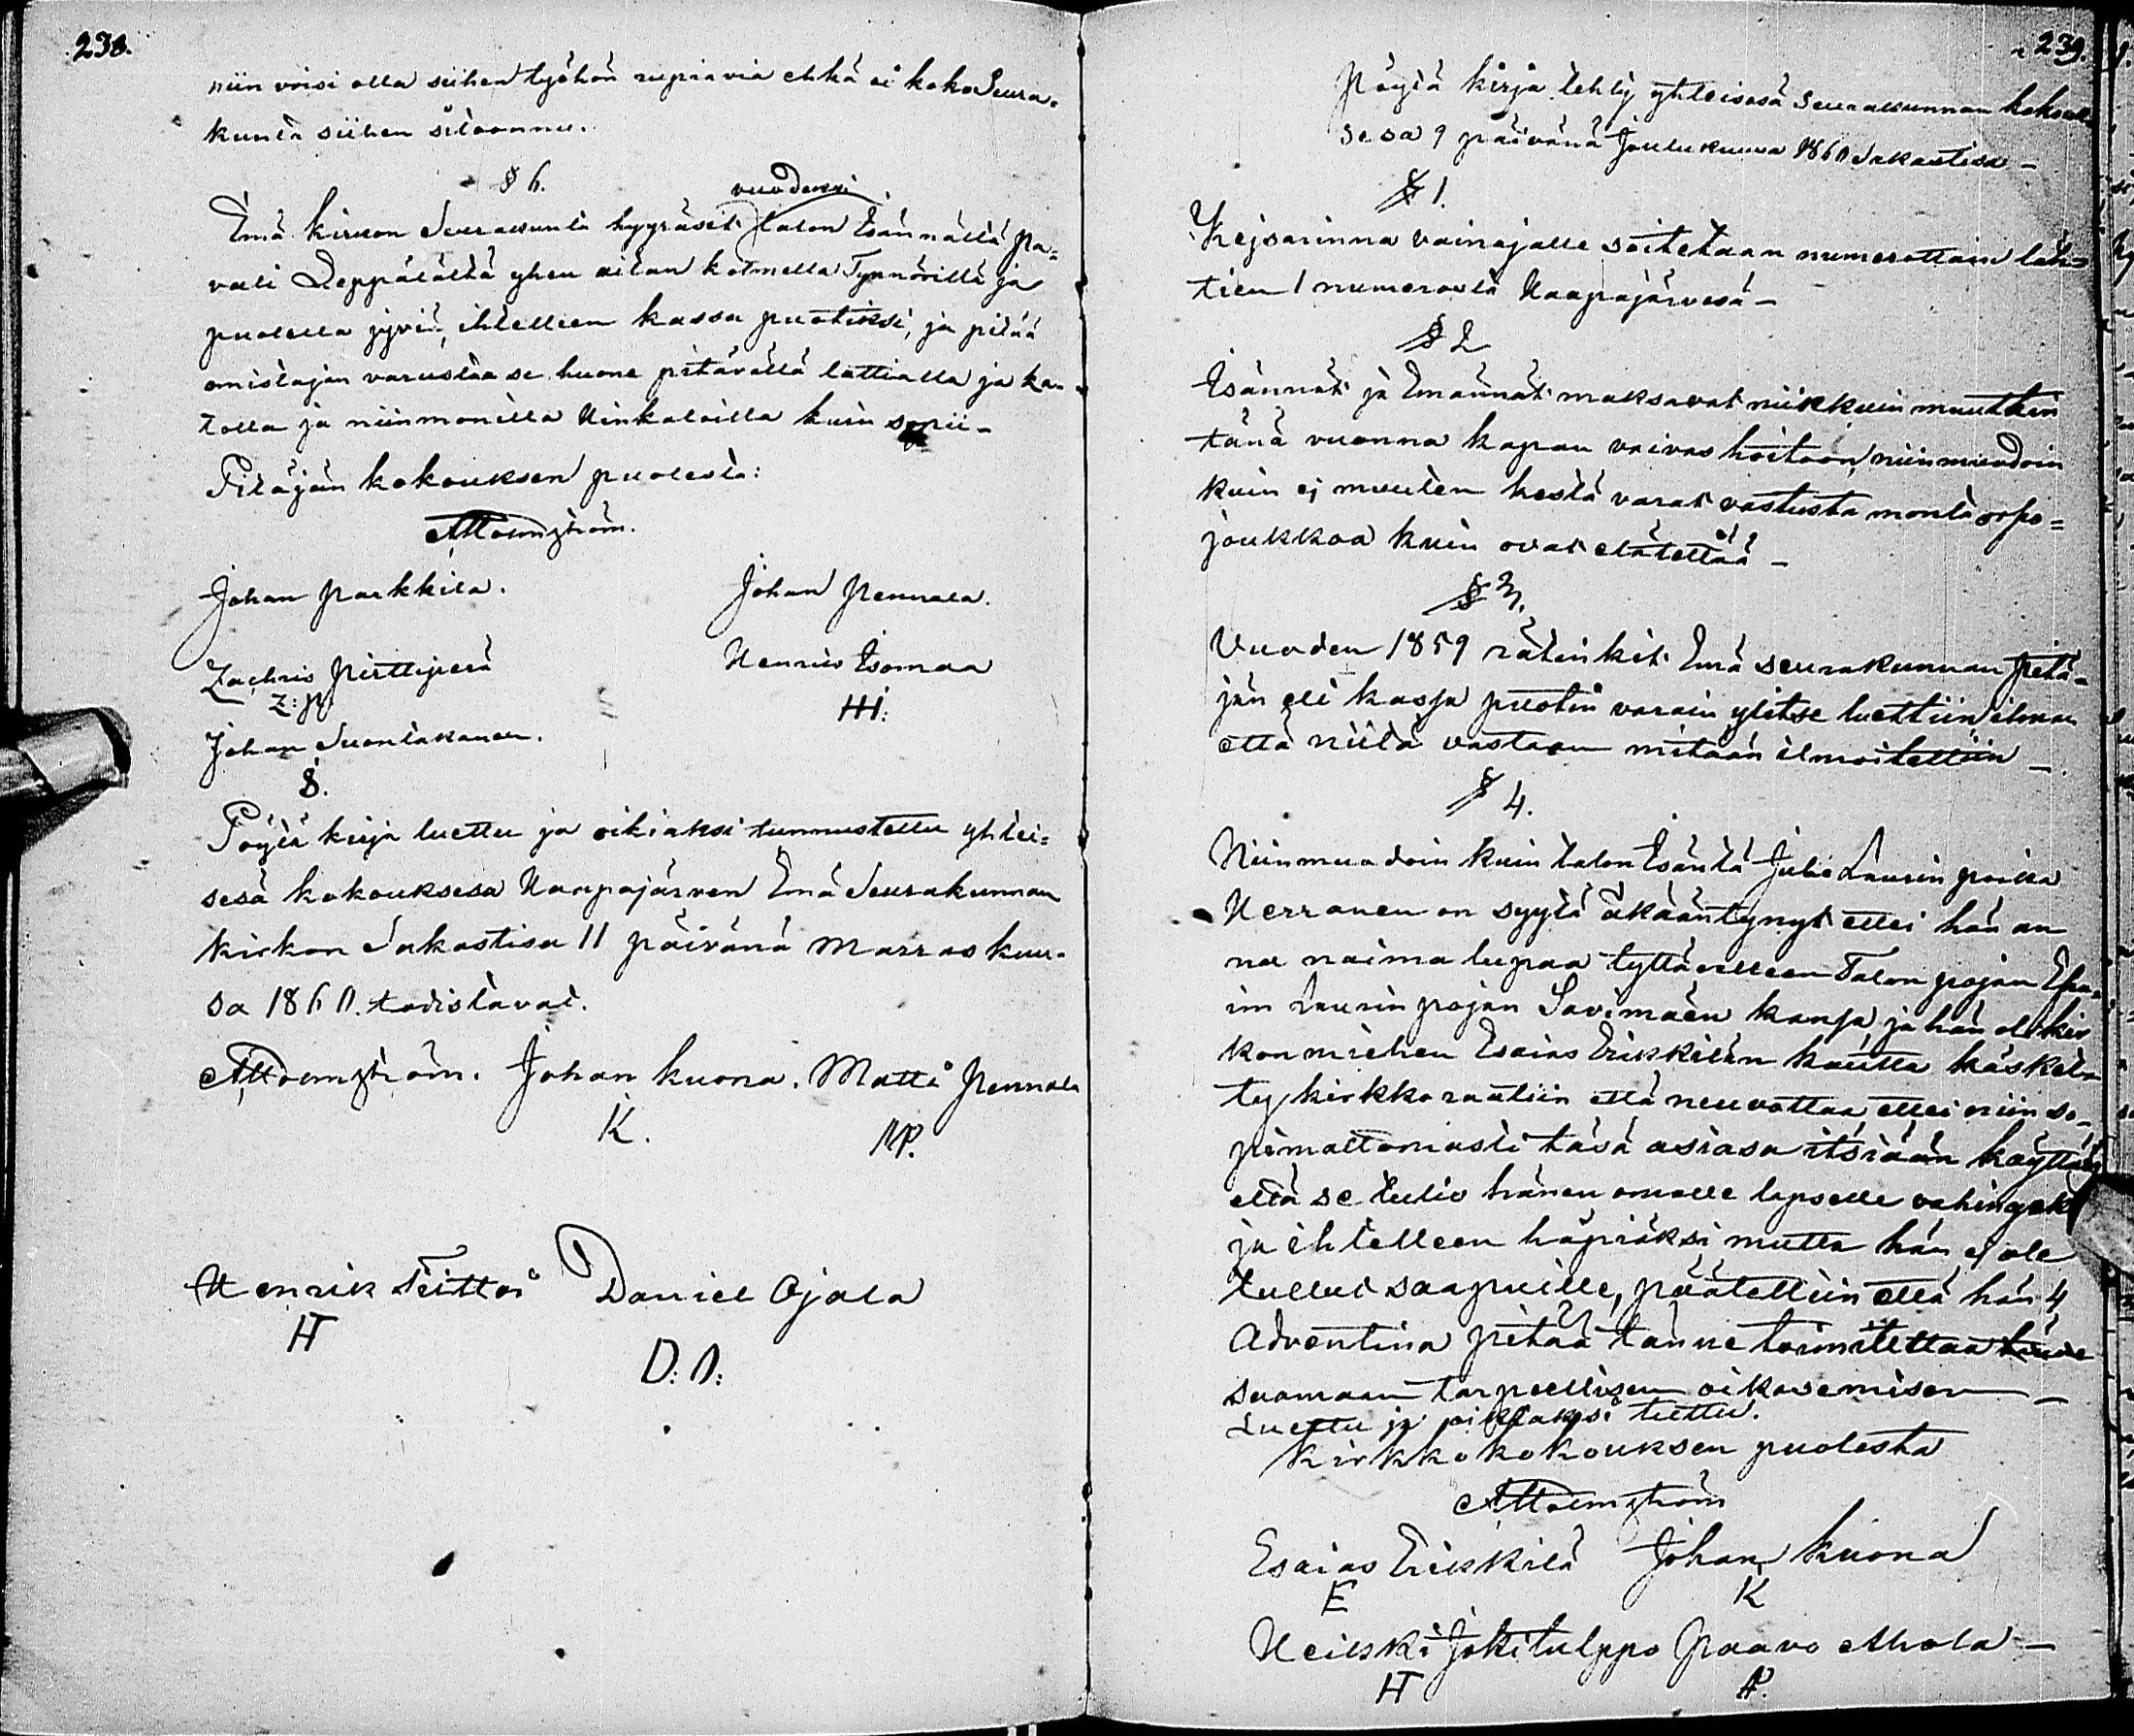 238.
niin voisi olla siihen työhön rupiavia ehkä ei koko Seura-
kunta siihen sitoonnu.
§ 6.
vuodeksi
Emä kirkon Seurakunta hyyräsit talon Isännältä Pa-
vali Leppälältä yhen aitan kolmella Tynnörillä ja
puolella jyviä, ihtelleen kassa puotiksi, ja pitää
omistajan varustaa se huone pitävällä lattialla ja ka-
tolla ja niinmonilla Hinkaloilla kuin sopii -
Pitäjän kokouksen puolesta:
Johan Parkkila.
Johan Pennala.
Zachris Pirttiperä
Henrik Isomaa
Z: P.
HI:
Johan Suontakanen.
S.
Pöytä kirja luettu ja oikiaksi tunnustettu yhtei-
sesä kokouksesa Haapajärven Emä Seurakunnan
kirkon Sakastisa 11 päivänä Marraskuu-
sa 1860. todistavat.
Johan Kuona. Matti Pennala
K.
MP.
Henrik Teittoi Daniel Ojala
HT
D: O:
239.
Pöytä kirja tehty yhteisesä Seurakunnan kokouk-
sesa 9 päivänä Joulukuusa 1860 Sakastisa -
§ 1.
Kejsarinna vainajalle soitetaan numerottain läh-
tien 1 numerosta Haapajärvesä -
§ 2
Isännät ja Emännät maksavat niikkuin muutkin
tänä vuonna kapan vaivas hoitoon, niinmuodoin
kuin ej muuten kestä varat vastusta monta orpo-
joukkoa kuin ovat elätettää -
§ 3.
Vuoden 1859 rätinkit Emä seurakunnan pitä-
jän eli kassa puotin varain ylitse luettiin ilman
että niitä vastaan mitään ilmoitettiin -
§ 4.
Niinmuodoin kuin talon Isäntä Juho Laurin poika
Herranen on syytä äkääntynyt ettei hän an
na naima lupaa tyttärelleen Talon pojan Efra-
im Laurin pojan Savimäen kansa, ja hän oli kir
konmiehen Esaias Erikkilän kautta käsket-
ty kirkkoraatiin että neuvottaa ettei niin so-
pimattomasti täsä asiasa itsiään käyttäy
että se tulis hänen omalle lapselle vahingoksi
ja ihtelleen häpiäksi mutta hän ej ole
tullut saapuille, päätettiin että hän 4
Adventina pitää tänne toimitettaa
saamaan tarpeellisen oikasemisen -
Luettu ja oikiaksi tuttu.
Kirkkokokouksen puolesta
Esaias Erikkilä Johan Kuona
E
K
Heikki Jokitulppo Paavo Ahola -
HT
AP.